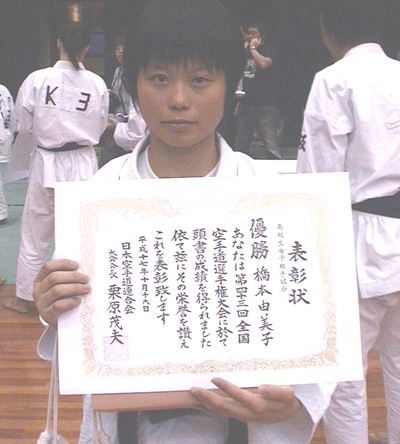 表彰状
高校生女子組手試合
優勝 橋本由美子
あなたは第四十三回全国
空手道選手権大会に於て
頭書の成績を得られました
依て茲にその栄誉を讃え
これを表彰致します
平成十七年十月十六日
日本空手道連合会
大会会長 栗原茂夫
K 3